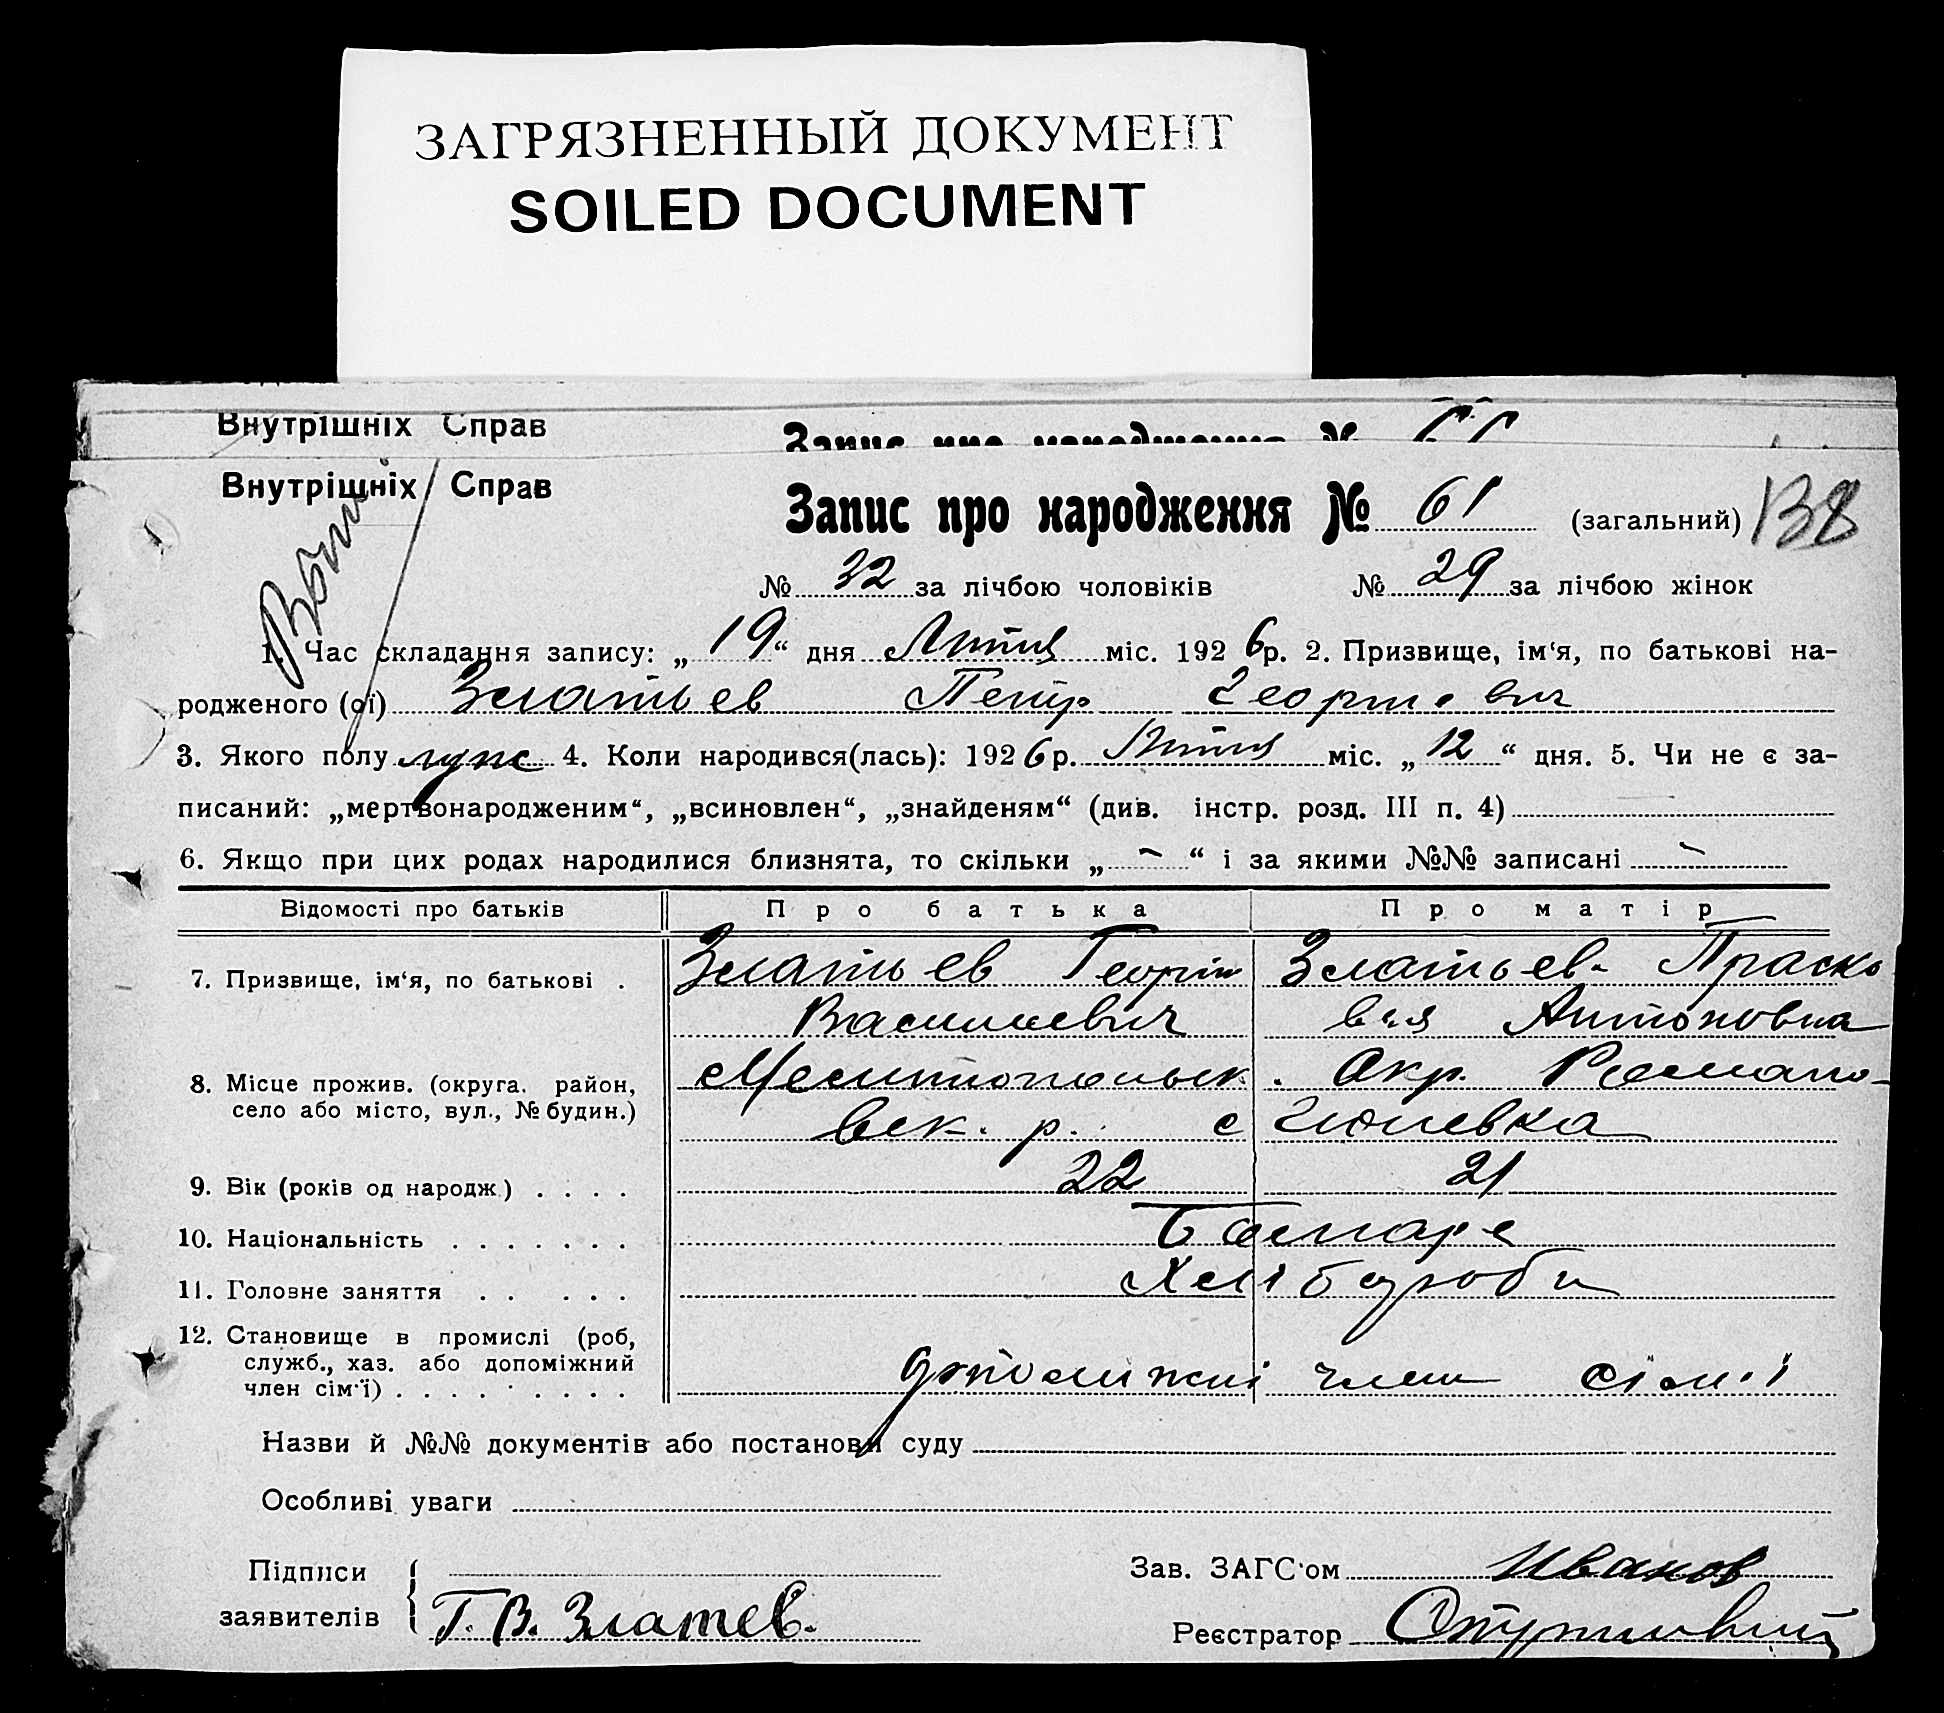 ЗАГРЯЗНЕННЫЙ ДОКУМЕНТ
SOILED DOCUMENT
Внутрішніх Справ
Запис про народження №
Внутрішніх Справ
Запис про народження № 61 (загальний)
№ 32 за лічбою чоловіків № 29 за лічбою жінок
1. Час складання запису: „19“ дня Лютня міс. 1926р. 2. Призвище, ім‘я, по батькові на-
родженого (ої) Златьев Петр Георгиевич
3. Якого полу муж 4. Коли народився(лась): 1926р. Лютня міс. „12“ дня. 5. Чи не є за-
писаний: „мертвонародженим“, „всиновлен“, „знайденям“ (див. інстр. розд. III п. 4)
6. Якщо при цих родах народилися близнята, то скільки „-“ і за якими №№ записані -
Відомості про батьків Про батька Про матір
7. Призвище, ім‘я, по батькові . Златьев Георгий Златьев- Праско
Василиевич вия Антоновна
8. Місце прожив. (округа, район, Мелитопольск. Окр. Романо-
село або місто, вул., № будин.) вск. р. с Гюневка
9. Вік (років од народж.) . . . . 22 21
10. Національність . . . . . . . Болгаре
11. Головне заняття . . . . . Хліборобы
12. Становище в промислі (роб,
служб., хаз. або допоміжний
член сім‘ї) . . . . . . . . . допоміжні члени сім‘ї
Назви й №№ документів або постанови суду
Особливі уваги
Підписи Зав. ЗАГС‘ом Иванов
заявителів Г. В. Златев. Реєстратор